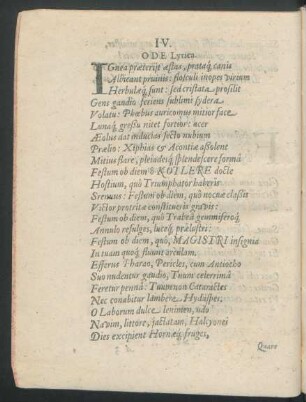 IV.
ODE Lyrica
IGnea præteriit æstas, prataq́; canis
Albicant pruinis: flosculi inopes virium
Herbulæq́; sunt: sed cristata prosilit
Gens gaudio feriens sublimi sydera
Volatu: Phœbus auricomus mitior face
Lunaq́; gressu nitet fortior: acer
Æolus dat inducias secto nubium
Prælio: Xiphiæ & Acontiæ assolent
Mitius flare, pleiadesq́; splendescere formâ
Festum ob diem ô KOTLERE docte
Hostium, quô Triumphator haberis
Strenuus: Festum ob diem, quô nocuæ classis
Victor protritæ constitueris gnavis:
Festum ob diem, quô Trabeâ gemmiferoq́;
Annulo refulges, luceq́; prælustres:
Festum ob diem, quô, MAGISTRI insignia
In tuam quoq́; fluunt arculam.
Esserne Tharon, Pericles, cum Antiocho
Suo nudentur gaudio, Tuum celerrimâ
Feretur pennâ: Tuumvum Cataractes
Nec conabitur lambere Hydüspes;
O Laborum dulce lenimen, udo
Navim, littore, jactatam, Halcyonei
Dies excipient Hornæq́; fruges,
Quare